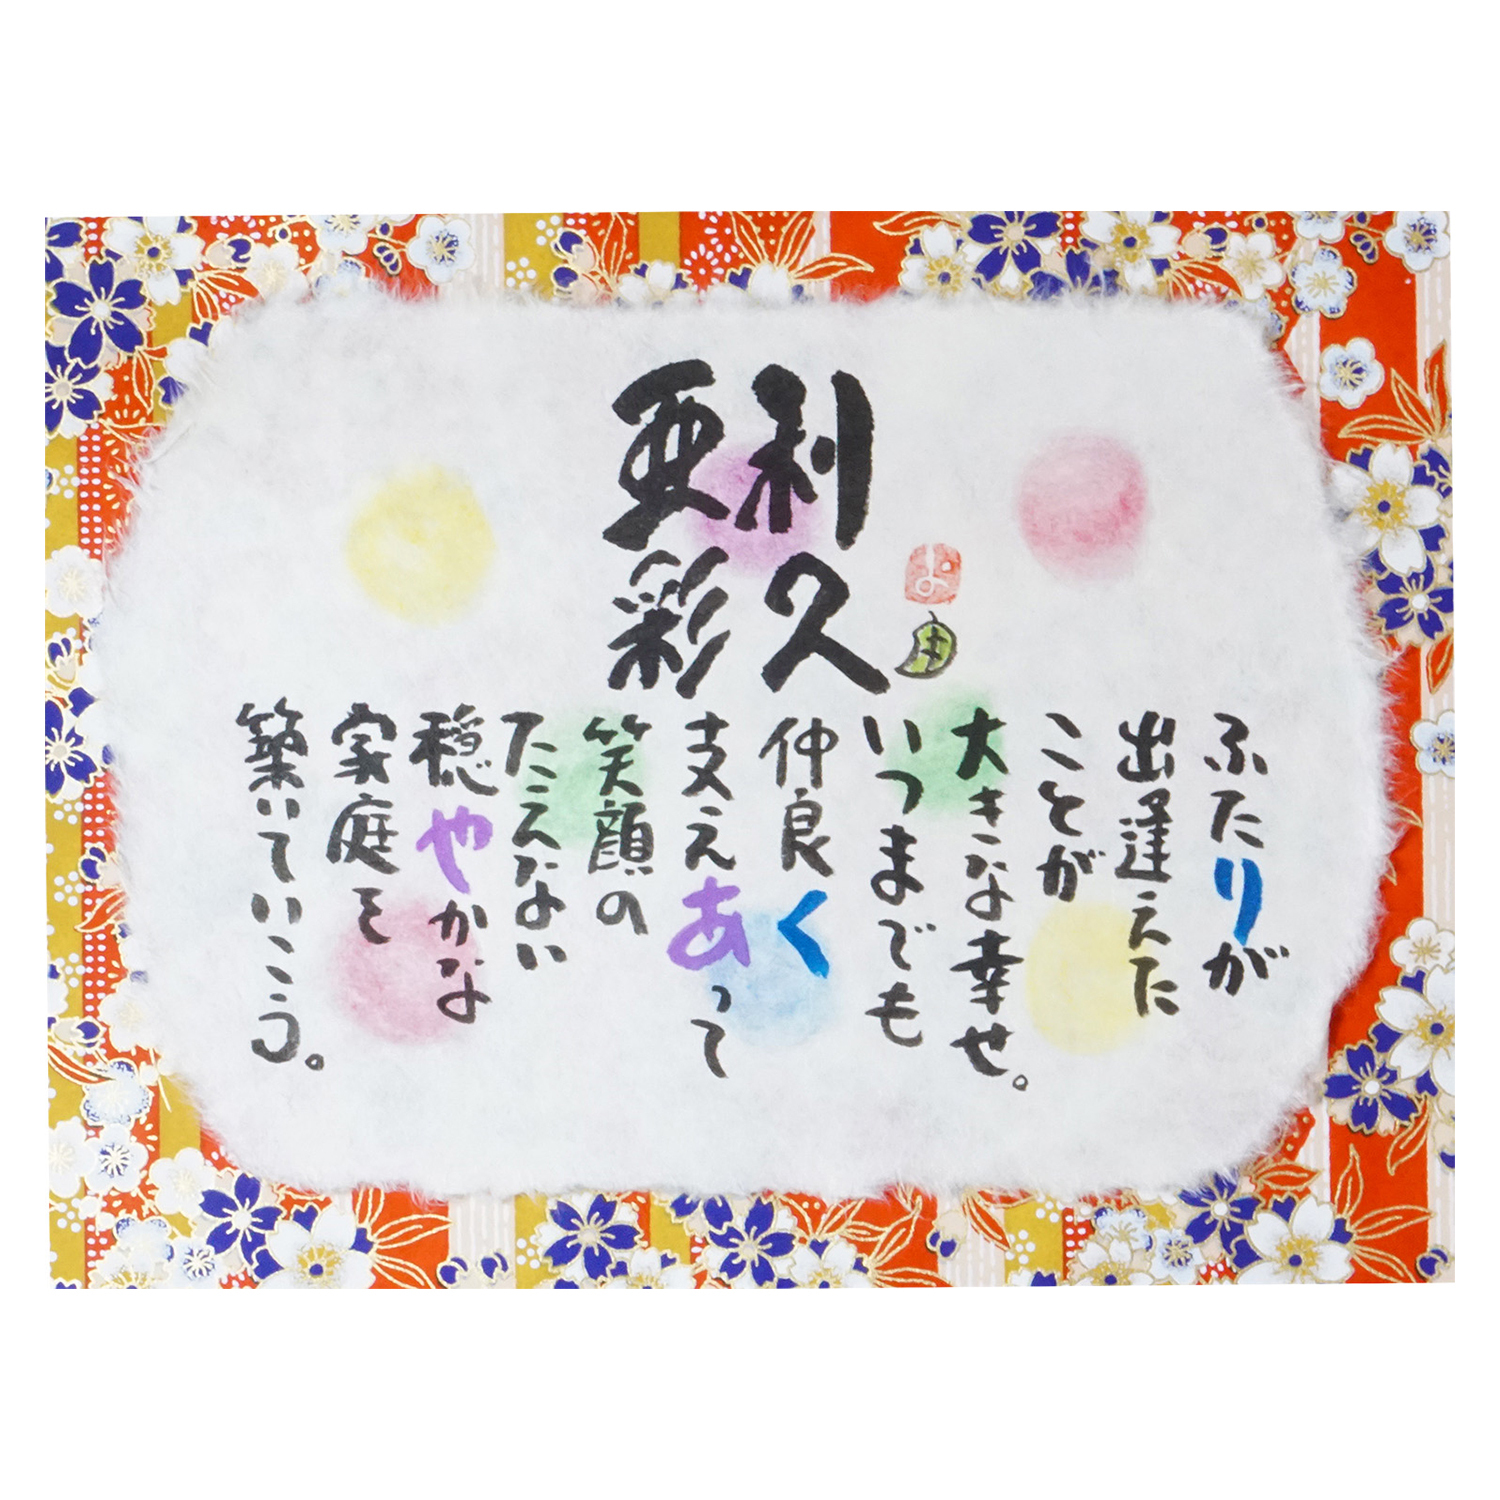 利久
亜彩
よ
ふたりが
出逢えた
ことが
大きな幸せ。
いつまでも
仲良く
支えあって
笑顔の
たえない
穏やかな
家庭を
築いていこう。